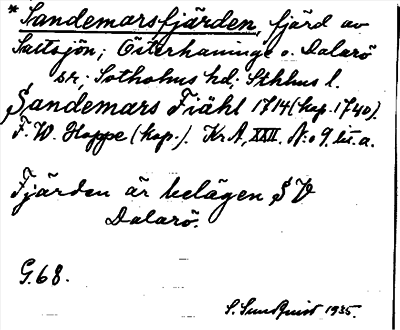 * Sandemarsfjärden, fjärd av
Saltsjön; Österhaninge o. Dalarö
sr; Sotholms hd; Sthlms l.
Sandemars Fiähl 1714 (kop. 1740).
F. W. Hoppe (kop.). Kr A, XXII, N:o 9 lit. a.
Fjärden är belägen SV
Dalarö.
G. 68.
S. Sundquist 1935.